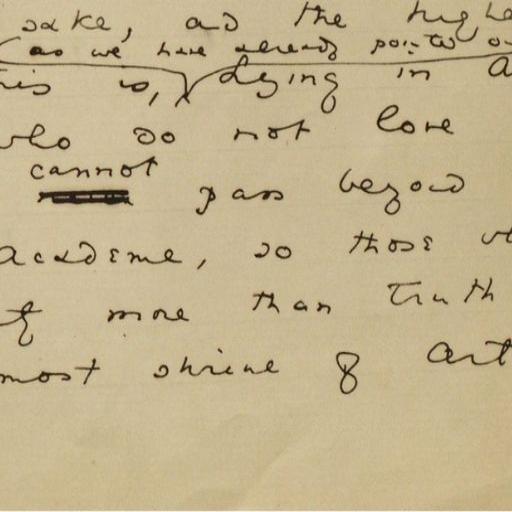 sake, and the highe
(as we have already pointed ou
his is, lying in A
who do not love
cannot
pass beyond
Academe, so those w
more than Truth
most shrine of Art